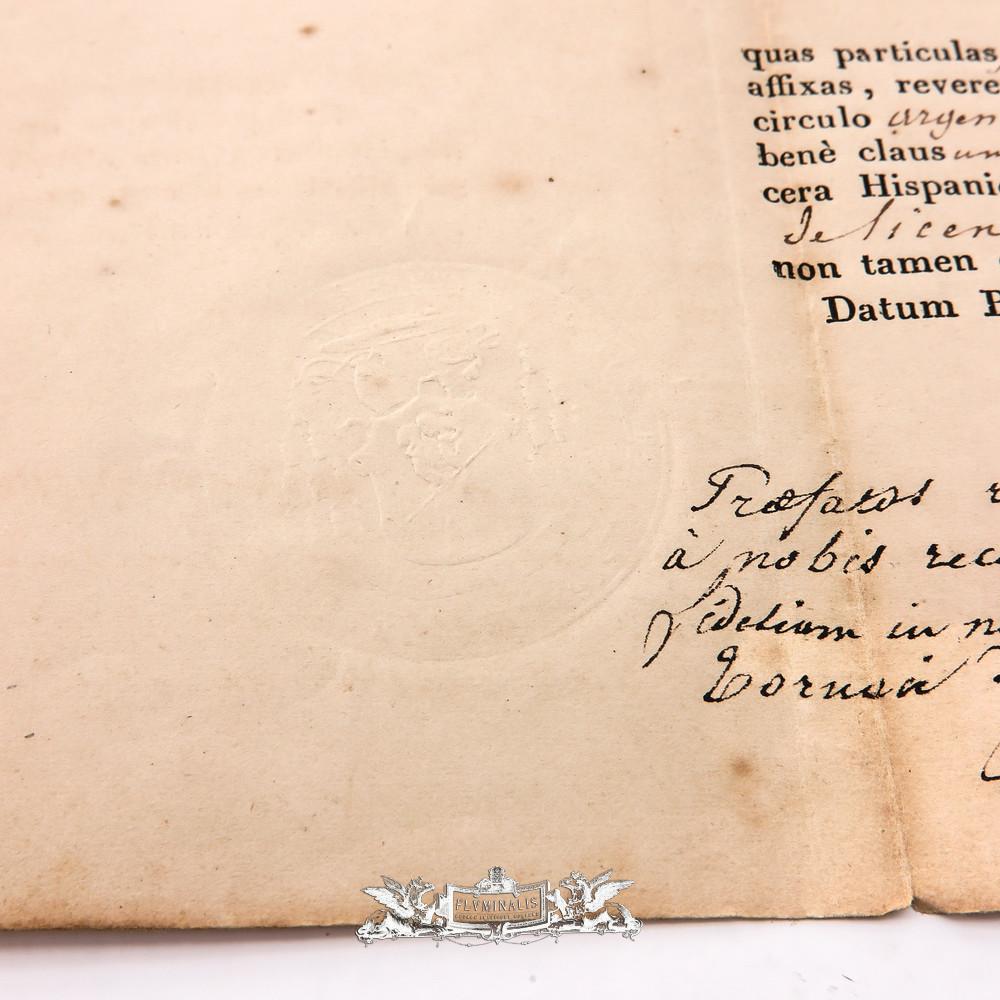 quas particulas
affixas, revere
circulo argen
benè claus um
cera Hispanic
de licen
non tamen
Datum B
Præfatas r
à nobis reco
fidelium in n
Tornaci
FLVMINALIS